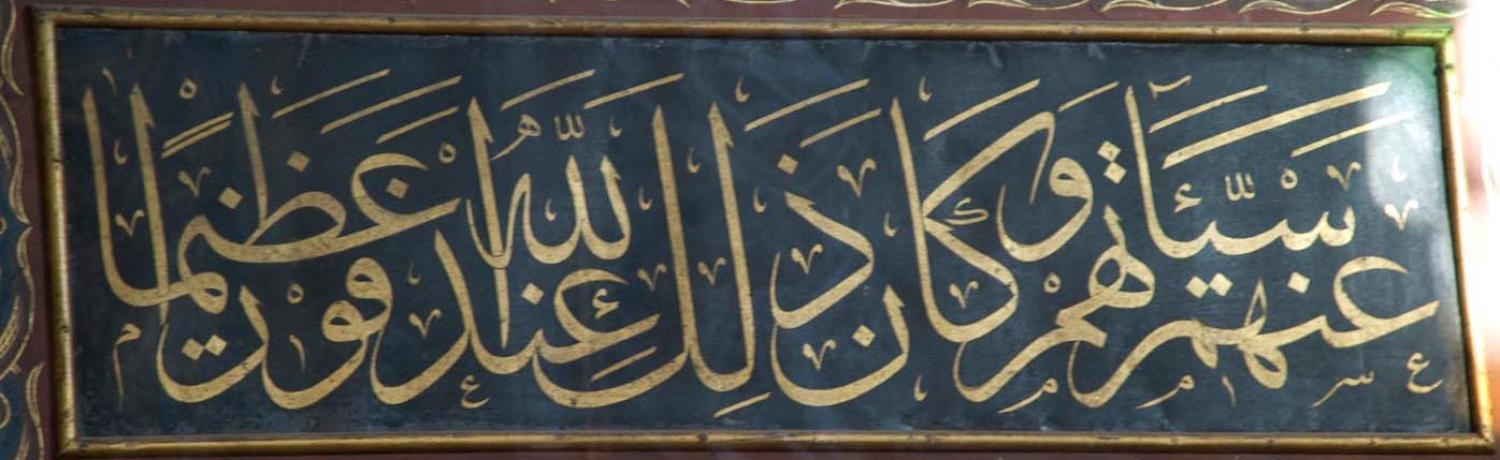 عنهم سيئاتهم وكان ذلك عند الله فوزا عظيما